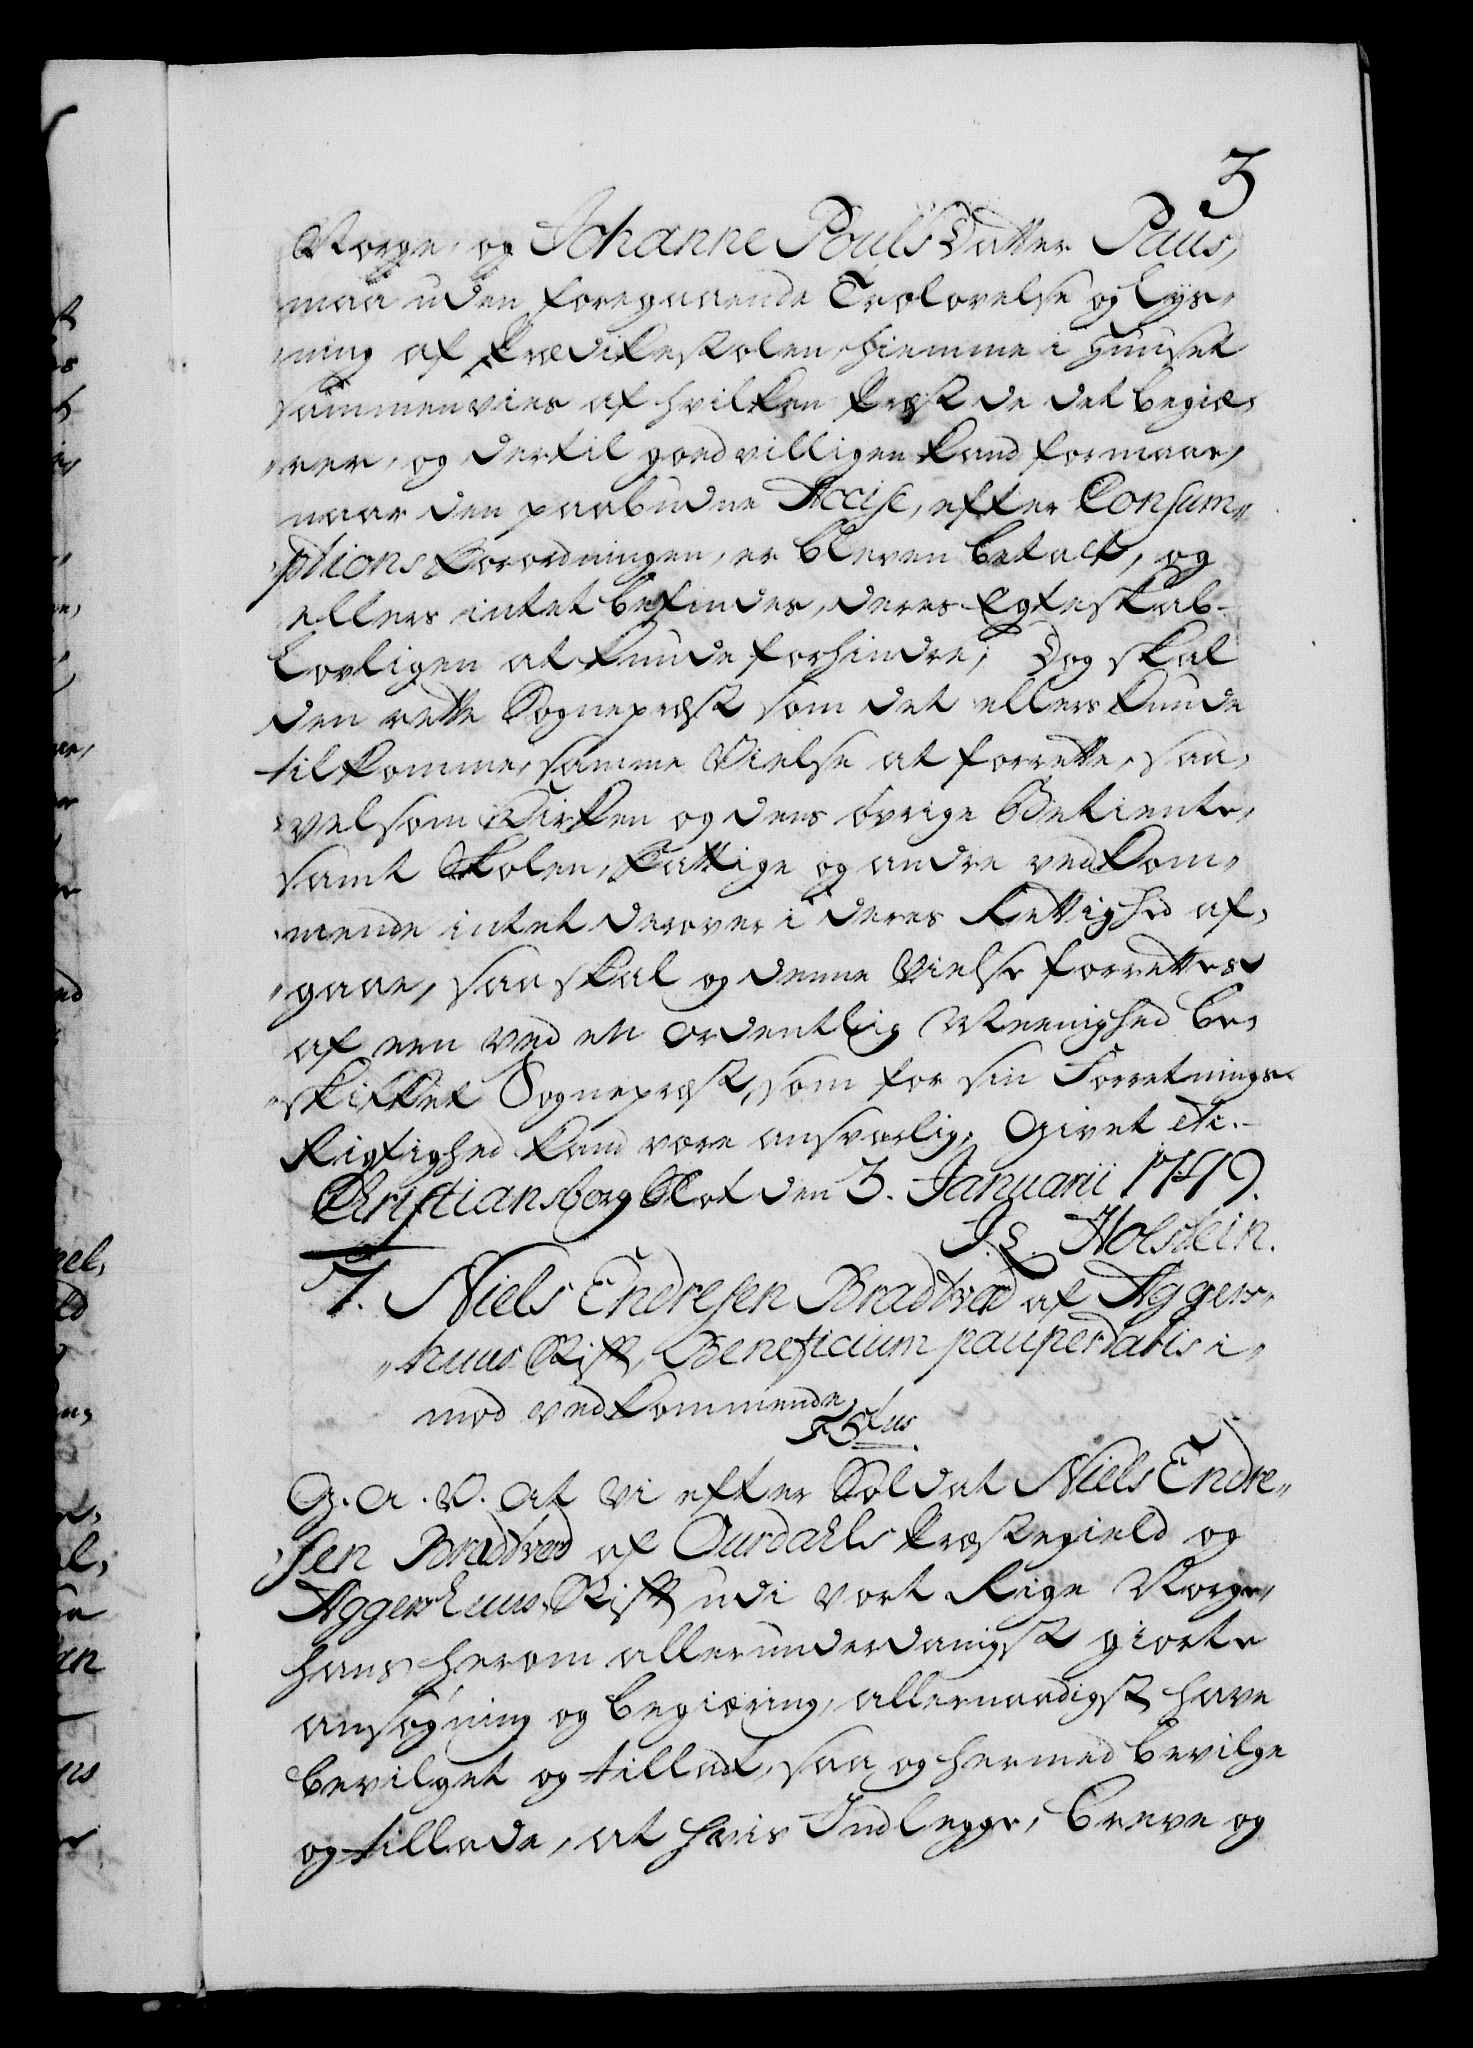 3
Norge, og Johanne Pouls Datter Paus,
maa uden foregaaende Trolovelse og Lys-
ning af Prædikestolen, hiemme i Huuset
sammenvies af hvilken Præst de det begiæ-
rer, og dertil goedvilligen kand formaae,
naar den paabudne Accise, efter Consum-
ptions Forordningen, er bleven betalt, og
ellers intet befindes, deres Egteskab
Lovligen at kunde forhindre; Dog skal
den rette Sognepræst som det ellers kunde
tilkomme, samme Vielse at forrette, saa-
velsom Kirken og dens øvrige Betiente,
samt Skolen, Fattige og andre vedkom-
mende intet derover i deres Rettighed af-
gaae, saa skal og denne Vielse forrettes
af een ved en ordentlig Meenighed be-
skikket Sognepræst, som for sin Forretnings
Rigtighed kand være ansvarlig. Givet etc.
Christiansborg Slot den 3. Januarii 1749.
J. L. Holstein.
7. Niels Endresen Bradtved af Agger-
huus Stift, Beneficium paupertatis i-
mod vedkommende.
F 5tus
G. A. V. At Vi efter Soldat Niels Endre-
sen Bradtved af Ourdahls Præstegield og
Aggershuus Stift udi Vort Rige Norge,
hans herom allerunderdanigst giorte
ansøgning og begiæring, allernaadigst have
bevilget og tilladt, saa og hermed bevilge
og tillade, at hvis Indlegge, Breve og